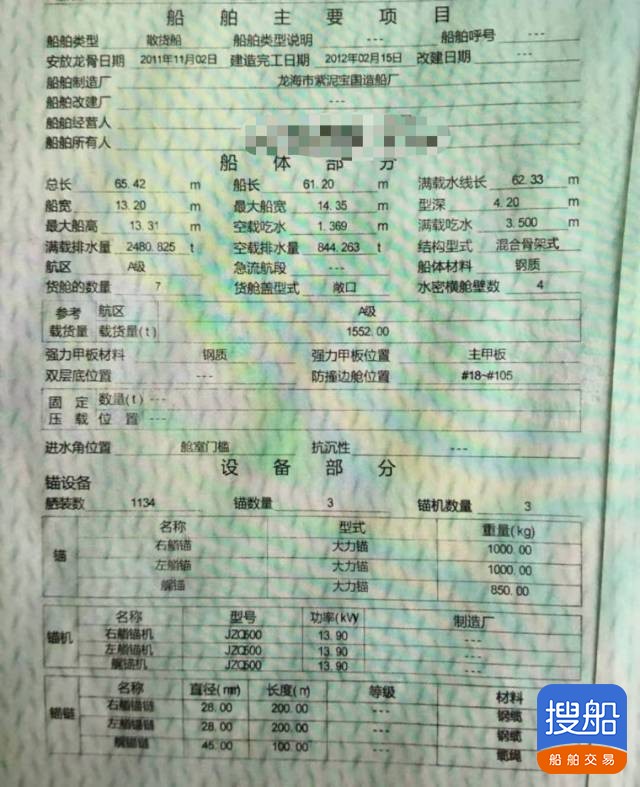 船舶主要项目
船舶类型 散货船 船舶类型说明 --- 船舶呼号 ---
安放龙骨日期 2011年11月02日 建造完工日期 2012年02月15日 改建日期 ---
船舶制造厂 龙海市紫泥宝国造船厂
船舶改建厂 ---
船舶经营人
船舶所有人
船体部分
总长 65.42 m 船长 61.20 m 满载水线长 62.33 m
船宽 13.20 m 最大船宽 14.35 m 型深 4.20 m
最大船高 13.31 m 空载吃水 1.369 m 满载吃水 3.500 m
满载排水量 2480.825 t 空载排水量 844.263 t 结构型式 混合骨架式
航区 A级 急流航段 --- 船体材料 钢质
货舱的数量 7 货舱盖型式 敞口 水密横舱壁数 4
参考 航区 A级
载货量 载货量(t) 1552.00
强力甲板材料 钢质 强力甲板位置 主甲板
双层底位置 --- 防撞边舱位置 #18~#105
固定 数量(t) ---
压载 位置 ---
进水角位置 舱室门槛 抗沉性 ---
设备部分
锚设备
舾装数 1134 锚数量 3 锚机数量 3
名称 型式 重量(kg)
锚 右艏锚 大力锚 1000.00
左艏锚 大力锚 1000.00
艉锚 大力锚 850.00
名称 型号 功率(kW) 制造厂
锚机 右艏锚机 JZQ500 13.90 ---
左艏锚机 JZQ500 13.90 ---
艉锚机 JZQ500 13.90 ---
名称 直径(mm) 长度(m) 等级 材料
锚链 右艏锚链 28.00 200.00 --- 钢缆
左艏锚链 28.00 200.00 --- 钢缆
艉锚链 45.00 100.00 ---
搜船
船舶交易